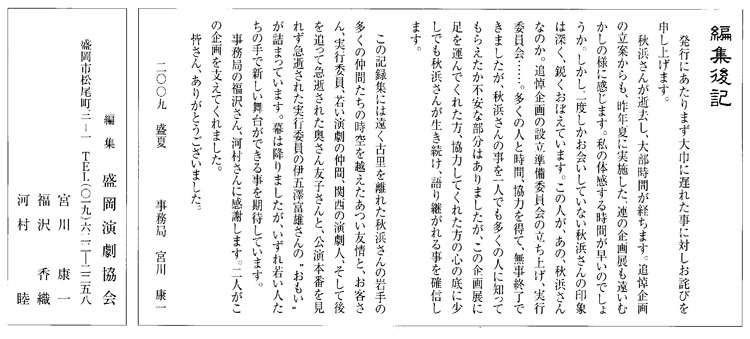 編集後記
発行にあたりまず大巾に遅れた事に対しお詫びを
申し上げます。
秋浜さんが逝去し、大部時間が経ちます。追悼企画
の立案からも、昨年夏に実施した一連の企画展も遠いむ
かしの様に感じます。私の体感する時間が早いのでしょ
うか。しかし、二度しかお会いしていない秋浜さんの印象
は深く、鋭くおぼえています。この人が、あの、秋浜さん
なのか。追悼企画の設立準備委員会の立ち上げ、実行
委員会……。多くの人と時間、協力を得て、無事終了で
きましたが、秋浜さんの事を一人でも多くの人に知って
もらえたか不安な部分はありましたが、この企画展に
足を運んでくれた方、協力してくれた方の心の底に少
しでも秋浜さんが生き続け、語り継がれる事を確信し
ます。
この記録集には遠く古里を離れた秋浜さんの岩手の
多くの仲間たちの時空を越えたあつい友情と、お客さ
ん、実行委員、若い演劇の仲間、関西の演劇人、そして後
を追って急逝された奥さん友子さんと、公演本番を見
れず急逝された実行委員の伊五澤富雄さんの〝おもい〟
が詰まっています。幕は降りましたが、いずれ若い人た
ちの手で新しい舞台ができる事を期待しています。
事務局の福沢さん、河村さんに感謝します。二人がこ
の企画を支えてくれました。
皆さん、ありがとうございました。
二〇〇九 盛夏 事務局 宮川 康一
編集 盛岡演劇協会
盛岡市松尾町三-一 TEL(〇一九)六二二-二二五八
宮川 康一
福沢 香織
河村 睦